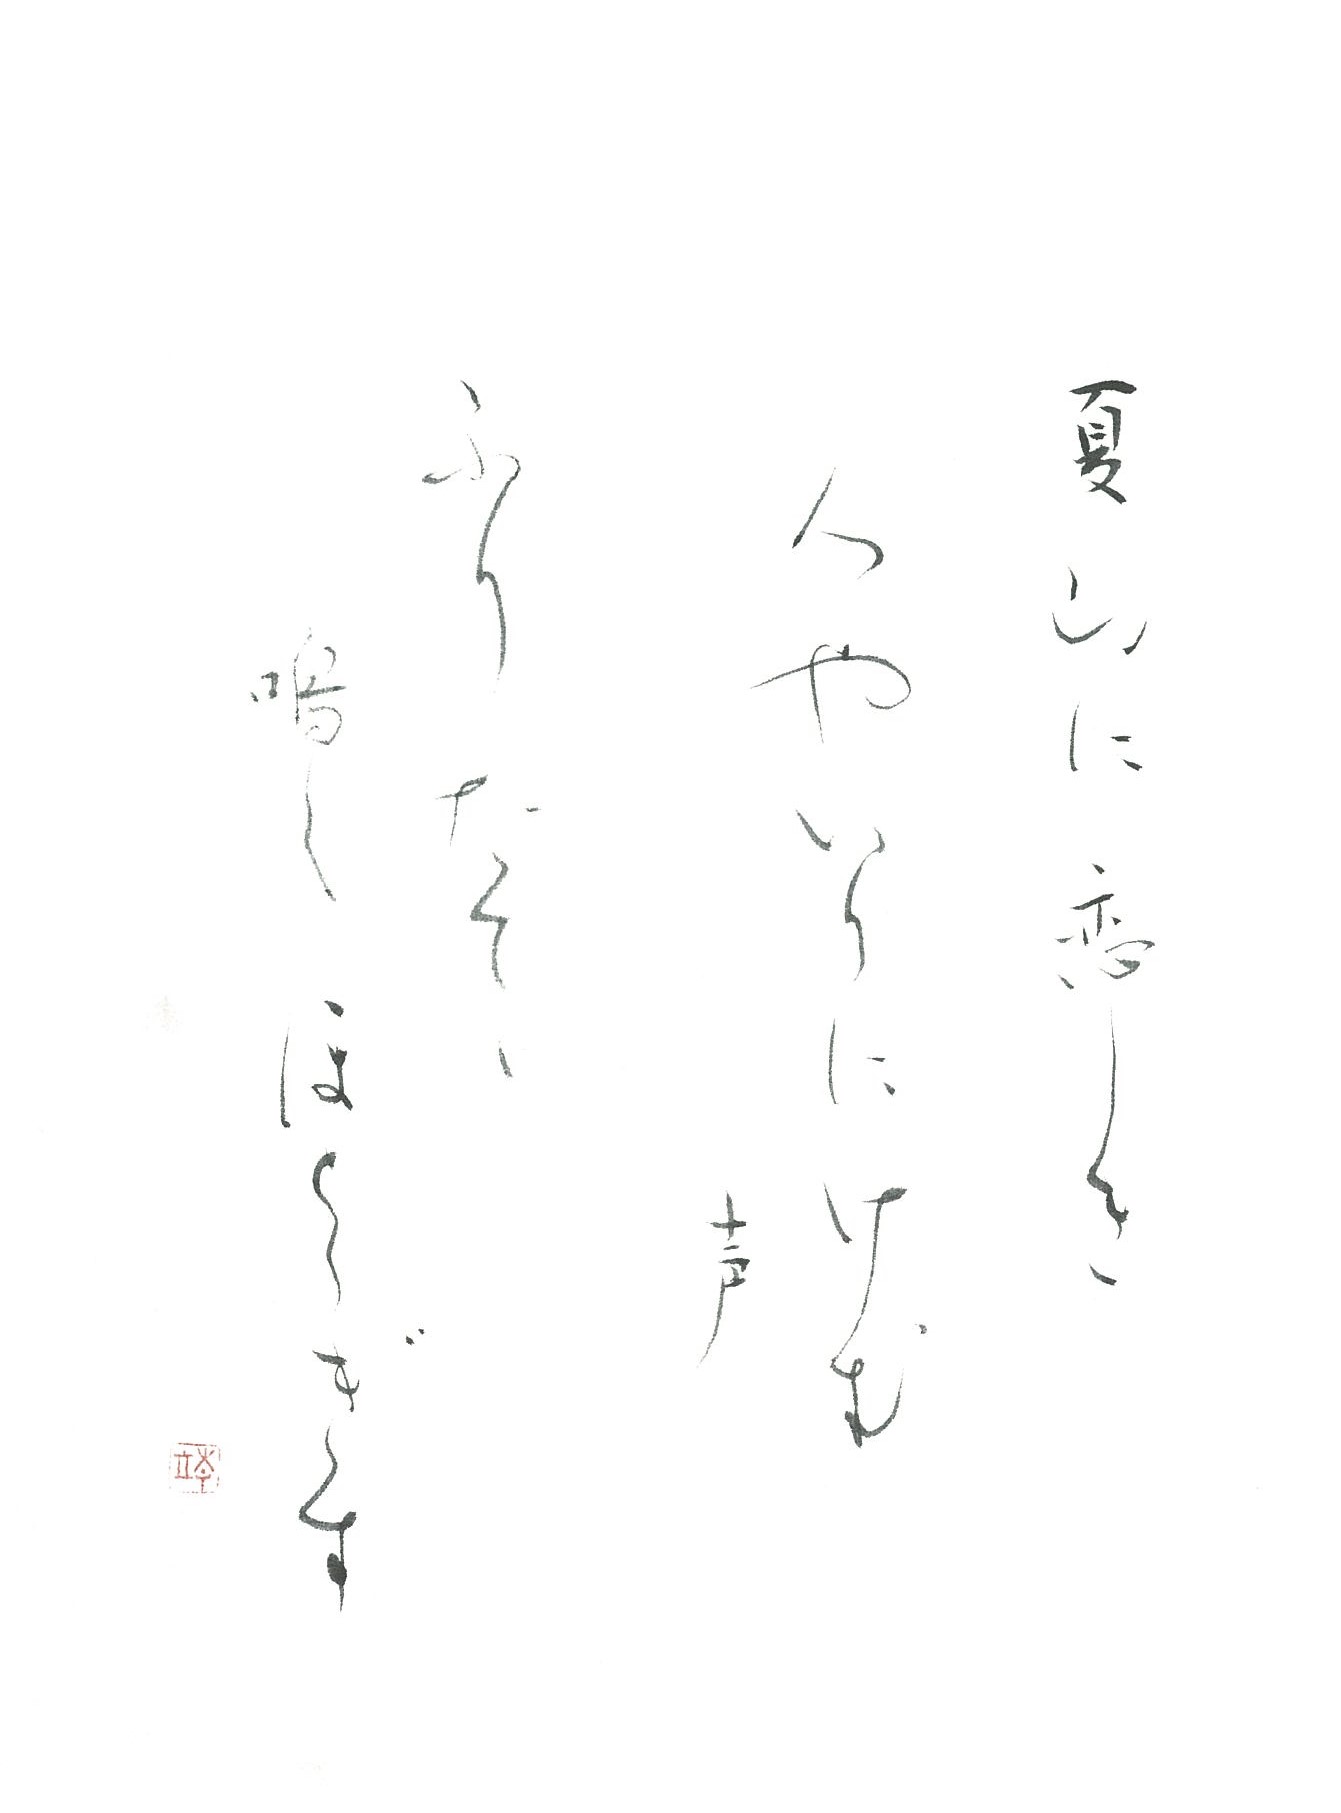 夏山に恋しき
人やいりにけむ
声
ふりたてゝ
鳴くほとゝぎす